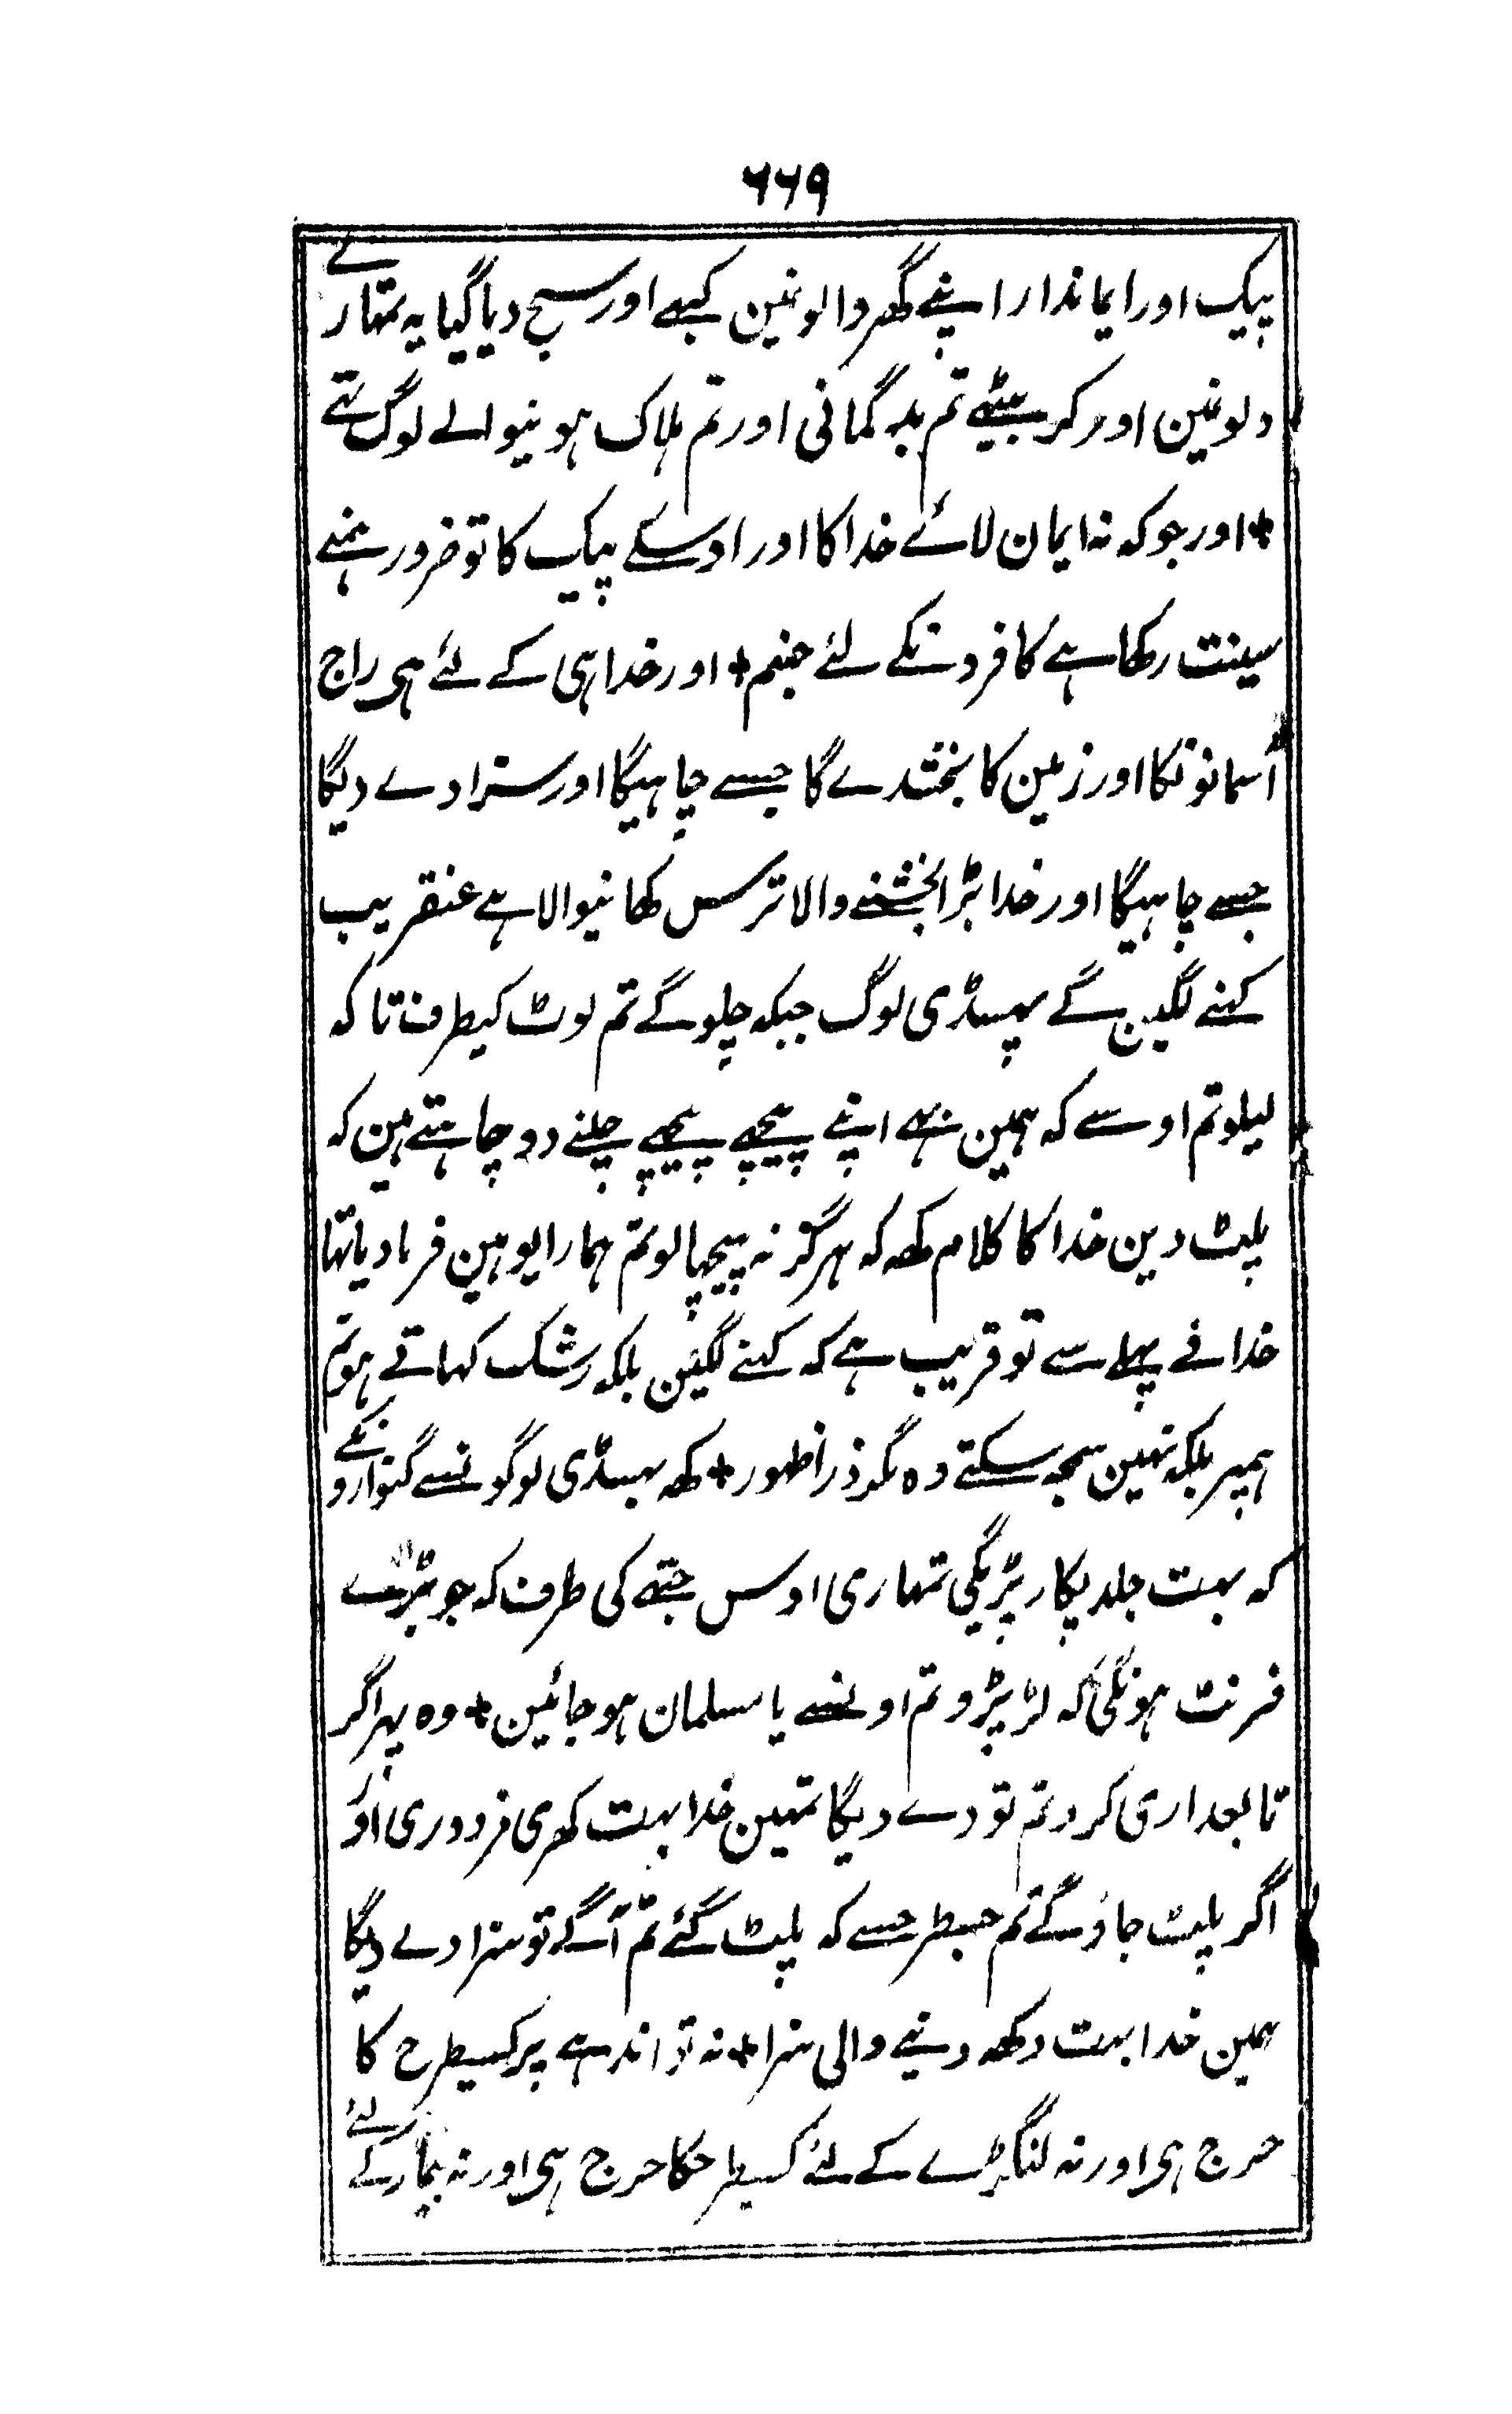 ۶۶۹
پیک اور ایماندار اپنے گھر والونمین کبھے اور سج دیا گیا یہ تمہارے
دلونمین اور کر بیٹھے تم بدگمانی اور تم ہلاک ہونیوالے لوگ تھے
+ اور جو کہ نہ ایمان لائے خدا کا اور اوسکے پیک کا تو ضرور ہمنے
سینت رکھا ہے کافرونکے لئے جہنم + اور خدا ہی کے لئے ہی راج
آسمانونکا اور زمین کا بخشدے گا جسے چاہیگا اور سزا دے دیگا
جسے چاہیگا اور خدا بڑا بخشنے والا ترس کھانیوالا ہے عنقریب
کہنے لگین گے پھسڈی لوگ جبکہ چلوگے تم لوٹ کیطرف تاکہ
لیلو تم اوسے کہ ہمین بہی اپنے پیچھے پیچھے چلنے دو چاہتے ہین کہ
پلٹ دین خدا کا کلام کھہ کہ ہرگز نہ پیچھا لو تم ہمارا یوہین فرما دیا تھا
خدا نے پہلے سے تو قریب ہے کہ کہنے لگین بلکہ رشک کہاتے ہو تم
ہمپر بلکہ نہین سمجھ سکتے وہ مگر ذرا ظہور + کھہ پھسڈی لوگونسے گنوارونکے
کہ بہت جلد پکار پڑیگی تمہاری اوس جتھے کی طرف کہ جو بڑے
فرنٹ ہونگی کہ لڑ پڑو تم اونسے یا مسلمان ہوجائین + وہ پہر اگر
تابعداری کرو تم تو دے دیگا تمہین خدا بہت کھری مزدوری اور
اگر پلٹ جاؤگے تم جسطرحسے کہ پلٹ گئے تم آگے تو سزا دے دیگا
ہمین خدا بہت دکھہ دینے والی سزا + نہ تو اندہے پر کسیطرح کا
حرج ہی اور نہ لنگڑے کے لئے کسیطرحکا حرج ہی اور نہ بیمار کے لئے